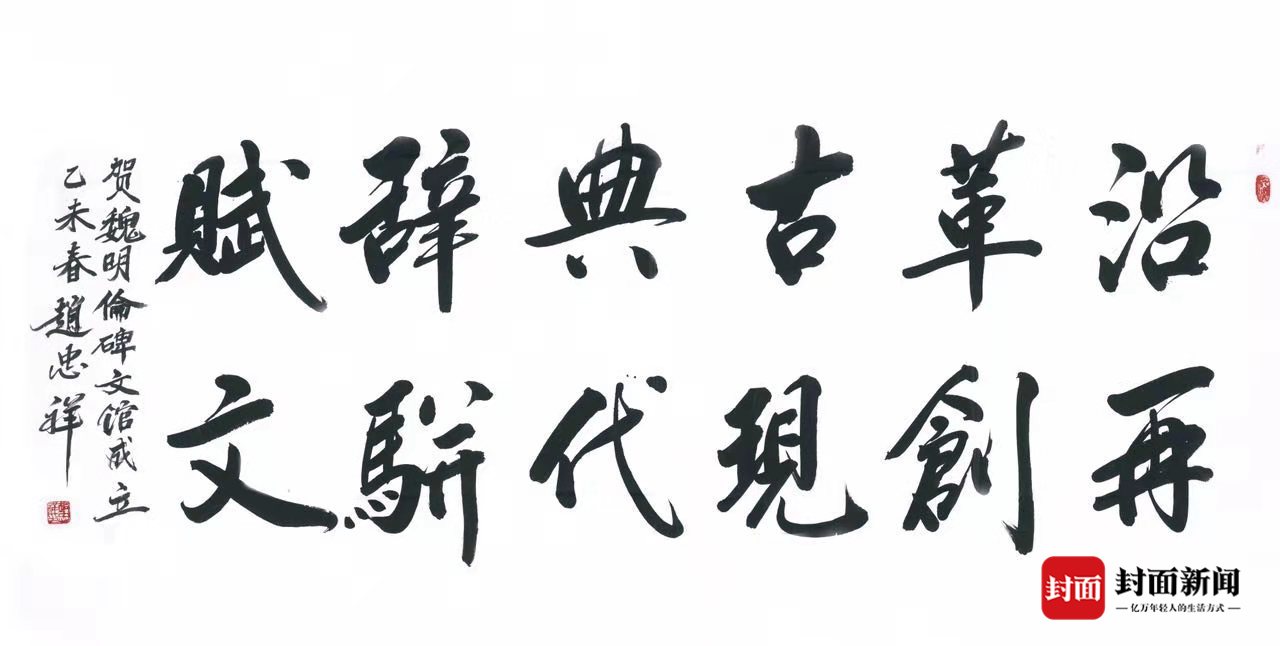 沿革古典辭賦
再創現代駢文
贺魏明倫碑文馆成立
乙未春趙忠祥
封面
封面新闻
亿万年轻人的生活方式